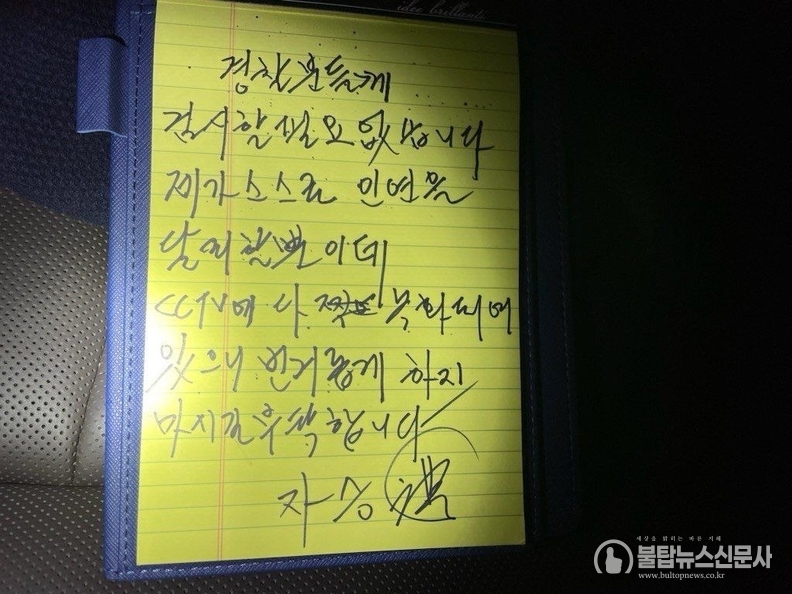 idee brillante
경찰분들께
검시할 필요 없습니다
제가 스스로 인연을
달리할 뿐이데
CCTV에 다 녹화되어
있으니 번거롭게 하지
마시길 부탁합니다
자승
세상을 밝히는 바른 지혜
불탑뉴스신문사
www.bultopnews.co.kr